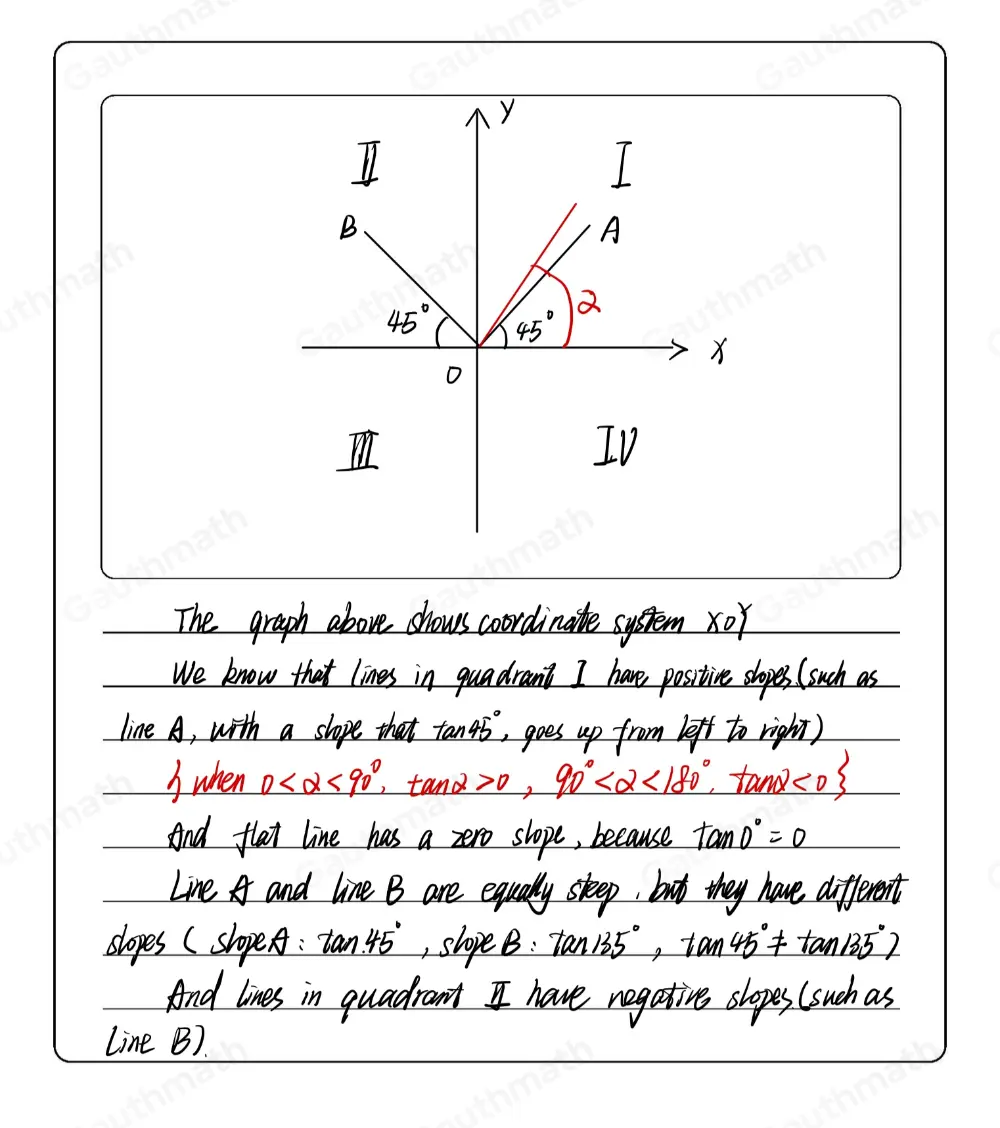 Y
II
I
B
A
45°
45°
α
X
O
III
IV
The graph above shows coordinate system XOY
We know that lines in quadrant I have positive slopes (such as
line A, with a slope that tan45°, goes up from left to right)
{ when 0<α<90°, tanα>0, 90°<α<180°, tanα<0 }
And flat line has a zero slope, because tan0°=0
Line A and line B are equally steep, but they have different
slopes ( slope A : tan45°, slope B : tan135°, tan45° ≠ tan135°)
And lines in quadrant II have negative slopes (such as
Line B).
Gauthmath